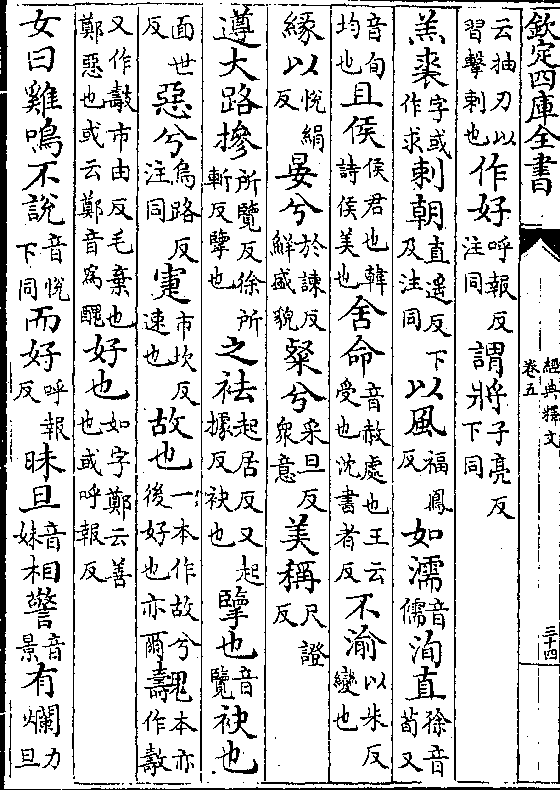 欽定四庫全書
經典釋文
卷五
三十四
云抽刀以習擊刺也作好呼報反注同謂將子亮反下同
羔裘字或作求刺朝直遙反下及注同以風福鳳反如濡音儒洵直徐音荀又
音旬均也且侯侯君也韓詩侯美也舍命音赦處也王云受也沈書者反不渝以朱反變也
緣以悅絹反晏兮於諫反鮮盛貌粲兮采旦反衆意美稱尺證反
遵大路摻所覽反徐所斬反擥也之袪起居反又起據反袂也擥也音覽袂也
面世反惡兮烏路反注同寁市坎反速也故也一本作故兮後好也亦爾魗本亦作
又作𣀘市由反毛棄也鄭惡也或云鄭音為醜好也如字鄭云善也或呼報反
女曰雞鳴不說音悅下同而好呼報反昧旦音妹相警音景有爛力旦